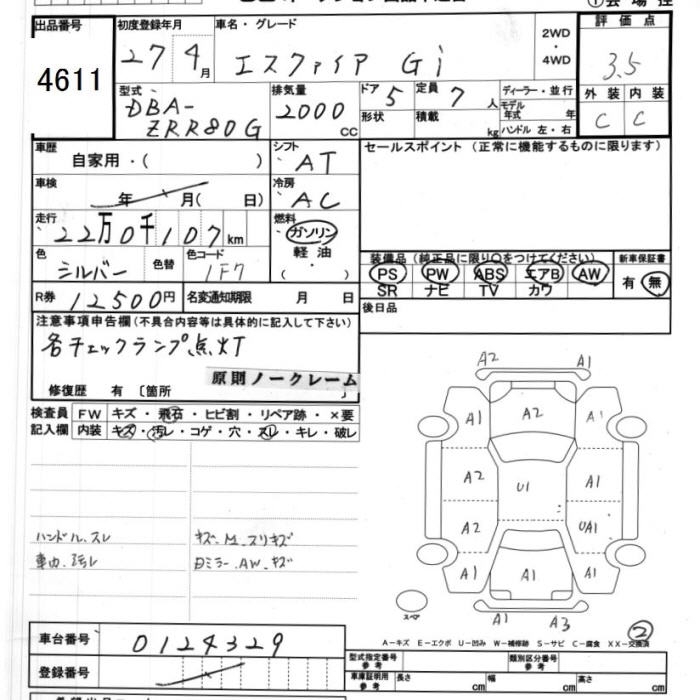 出品番号
4611
初度登録年月
27 4月
車名・グレード
エスクァイア Gi
2WD
・
4WD
評価点
3.5
外装 内装
C C
型式
DBA-
ZRR80G
排気量
2000 CC
ドア 5
定員 7 人
形状
積載 kg
ディーラー・並行
モデル
年式 年
ハンドル 左・右
車歴
自家用・( )
シフト
AT
セールスポイント (正常に機能するものに限ります)
車検
年 月( 日)
冷房
AC
走行
22万0千107km
燃料
ガソリン
軽油
( ・ )
色
シルバー
色替
色コード
1F7
装備品 (純正品に限り○をつけてください)
PS PW ABS エアB AW
SR ナビ TV カワ
新車保証書
有・無
R券 12500円
名変通知期限 月 日
後日品
注意事項申告欄(不具合内容等は具体的に記入して下さい)
各チェックランプ点灯
原則ノークレーム
修復歴 有 〔箇所 〕
検査員
記入欄
FW キズ・飛石・ヒビ割・リペア跡・×要
内装 キズ・汚レ・コゲ・穴・スレ・キレ・破レ
ハンドル.スレ
車内.汚レ
キズ.M.スリキズ
Dミラー.AW.キズ
A2 A1
A1 A2 A1
A2 U1 A1
A2 UA1
A1 A1 A1
A1 A3
スペア
2
A－キズ E－エクボ U－凹み W－補修跡 S－サビ C－腐食 XX－交換済
車台番号 0124329
登録番号
型式指定番号
参考
類別区分番号
参考
車庫証明用
参考
長さ cm
幅 cm
高さ cm